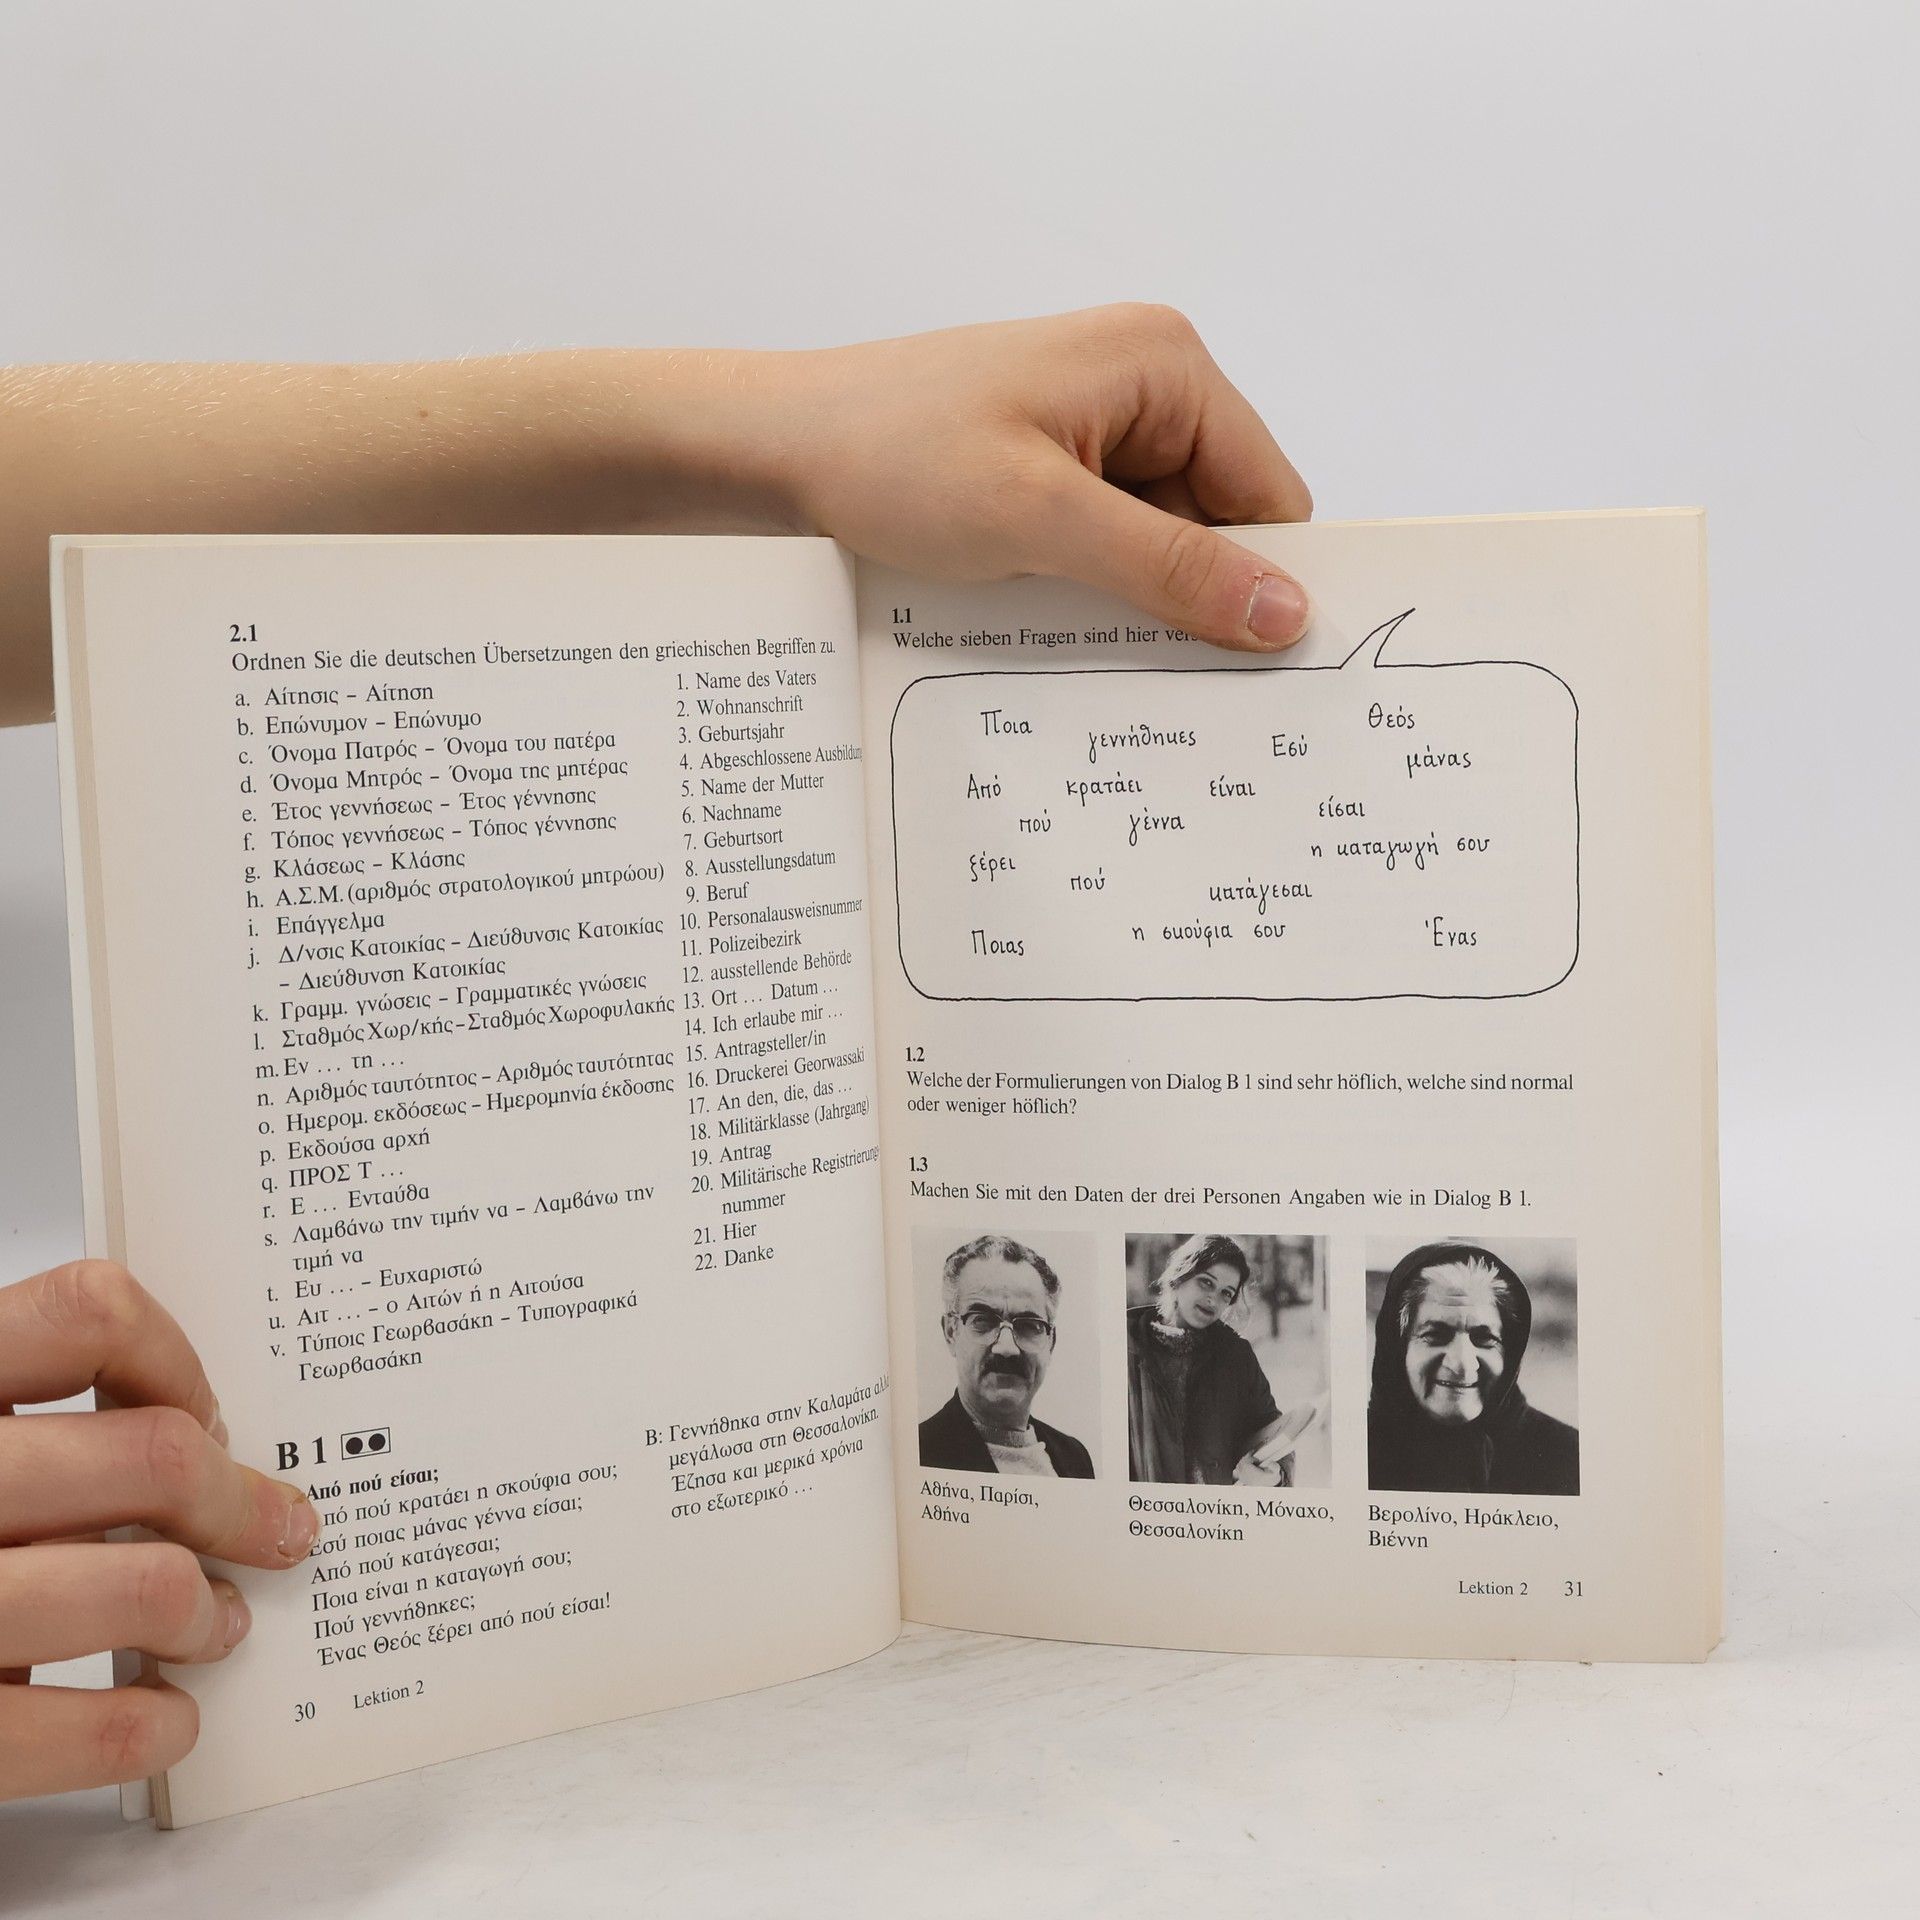 2.1
Ordnen Sie die deutschen Übersetzungen den griechischen Begriffen zu.
a. Αίτησις – Αίτηση
b. Επώνυμον – Επώνυμο
c. Όνομα Πατρός – Όνομα του πατέρα
d. Όνομα Μητρός – Όνομα της μητέρας
e. Έτος γεννήσεως – Έτος γέννησης
f. Τόπος γεννήσεως – Τόπος γέννησης
g. Κλάσεως – Κλάσης
h. Α.Σ.Μ. (αριθμός στρατολογικού μητρώου)
i. Επάγγελμα
j. Δ/νσις Κατοικίας – Διεύθυνσις Κατοικίας
– Διεύθυνση Κατοικίας
k. Γραμμ. γνώσεις – Γραμματικές γνώσεις
l. Σταθμός Χωρ/κής – Σταθμός Χωροφυλακής
m. Εν ... τη ...
n. Αριθμός ταυτότητος – Αριθμός ταυτότητας
o. Ημερομ. εκδόσεως – Ημερομηνία έκδοσης
p. Εκδούσα αρχή
q. ΠΡΟΣ Τ ...
r. Ε ... Ενταύθα
s. Λαμβάνω την τιμήν να – Λαμβάνω την
τιμή να
t. Ευ ... – Ευχαριστώ
u. Αιτ ... – ο Αιτών ή η Αιτούσα
v. Τύποις Γεωρβασάκη – Τυπογραφικά
Γεωρβασάκη
1. Name des Vaters
2. Wohnanschrift
3. Geburtsjahr
4. Abgeschlossene Ausbildung
5. Name der Mutter
6. Nachname
7. Geburtsort
8. Ausstellungsdatum
9. Beruf
10. Personalausweisnummer
11. Polizeibezirk
12. ausstellende Behörde
13. Ort ... Datum ...
14. Ich erlaube mir ...
15. Antragsteller/in
16. Druckerei Georwassaki
17. An den, die, das ...
18. Militärklasse (Jahrgang)
19. Antrag
20. Militärische Registrierungs-
nummer
21. Hier
22. Danke
B 1
Από πού είσαι;
πό πού κρατάει η σκούφια σου;
Εσύ ποιας μάνας γέννα είσαι;
Από πού κατάγεσαι;
Ποια είναι η καταγωγή σου;
Πού γεννήθηκες;
Ένας Θεός ξέρει από πού είσαι!
B: Γεννήθηκα στην Καλαμάτα αλλά
μεγάλωσα στη Θεσσαλονίκη.
Έζησα και μερικά χρόνια
στο εξωτερικό ...
30 Lektion 2
1.1
Welche sieben Fragen sind hier
Ποια γεννήθηκες Εσύ Θεός
μάνας
Από κρατάει είναι
είσαι
πού γέννα
η καταγωγή σου
ξέρει
πού κατάγεσαι
Ποιας η σκούφια σου Ένας
1.2
Welche der Formulierungen von Dialog B 1 sind sehr höflich, welche sind normal
oder weniger höflich?
1.3
Machen Sie mit den Daten der drei Personen Angaben wie in Dialog B 1.
Αθήνα, Παρίσι,
Αθήνα
Θεσσαλονίκη, Μόναχο,
Θεσσαλονίκη
Βερολίνο, Ηράκλειο,
Βιέννη
Lektion 2 31